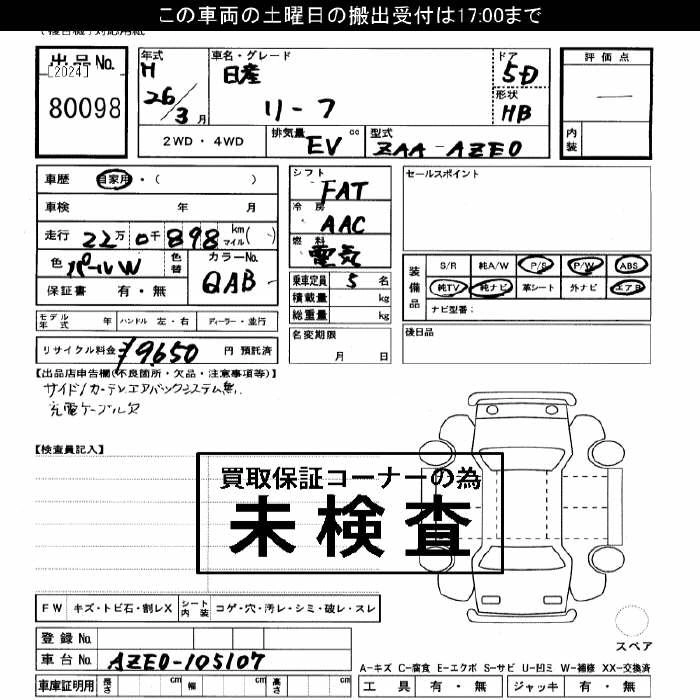 この車両の土曜日の搬出受付は17:00まで
出品No.
[2024]
80098
年式
H
26/3月
車名・グレード
日産
リーフ
ドア
5D
形状
HB
評価点
—
内装
2WD・4WD
排気量 EV cc
型式 ZAA-AZE0
車歴 自家用・( )
車検 年 月
走行 22万0千898 km マイル( )
色 パールW 色替
カラーNo.
QAB
保証書 有・無
シフト
FAT
冷房
AAC
燃料
電気
乗車定員 5 名
積載量 kg
総重量 kg
セールスポイント
装備品
S/R 純A/W P/S P/W ABS
純TV 純ナビ 革シート 外ナビ エアB
ナビ型番:
モデル年式 年 ハンドル 左・右 ディーラー・並行
名変期限
月 日
後日品
リサイクル料金 ¥9650 円 預託済
【出品店申告欄(不良箇所・欠品・注意事項等)】
サイド/カーテンエアバックシステム無し
充電ケーブル欠
【検査員記入】
買取保証コーナーの為
未検査
FW キズ・トビ石・割レX シート内装 コゲ・穴・汚レ・シミ・破レ・スレ
スペア
登録No.
車台No. AZE0-105107
A-キズ C-腐食 E-エクボ S-サビ U-凹ミ W-補修 XX-交換済
車庫証明用 長さ cm 幅 cm 高さ cm
工具 有・無 ジャッキ 有・無